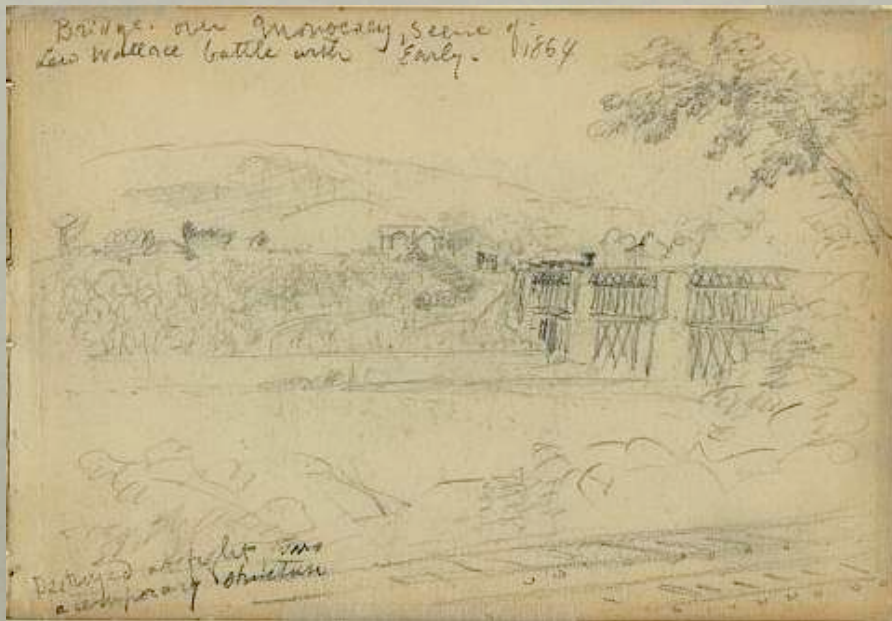 Bridge. over Monocacy, scene of
Lew Wallace battle with Early. 1864
Destroyed at fight
a temporary structure